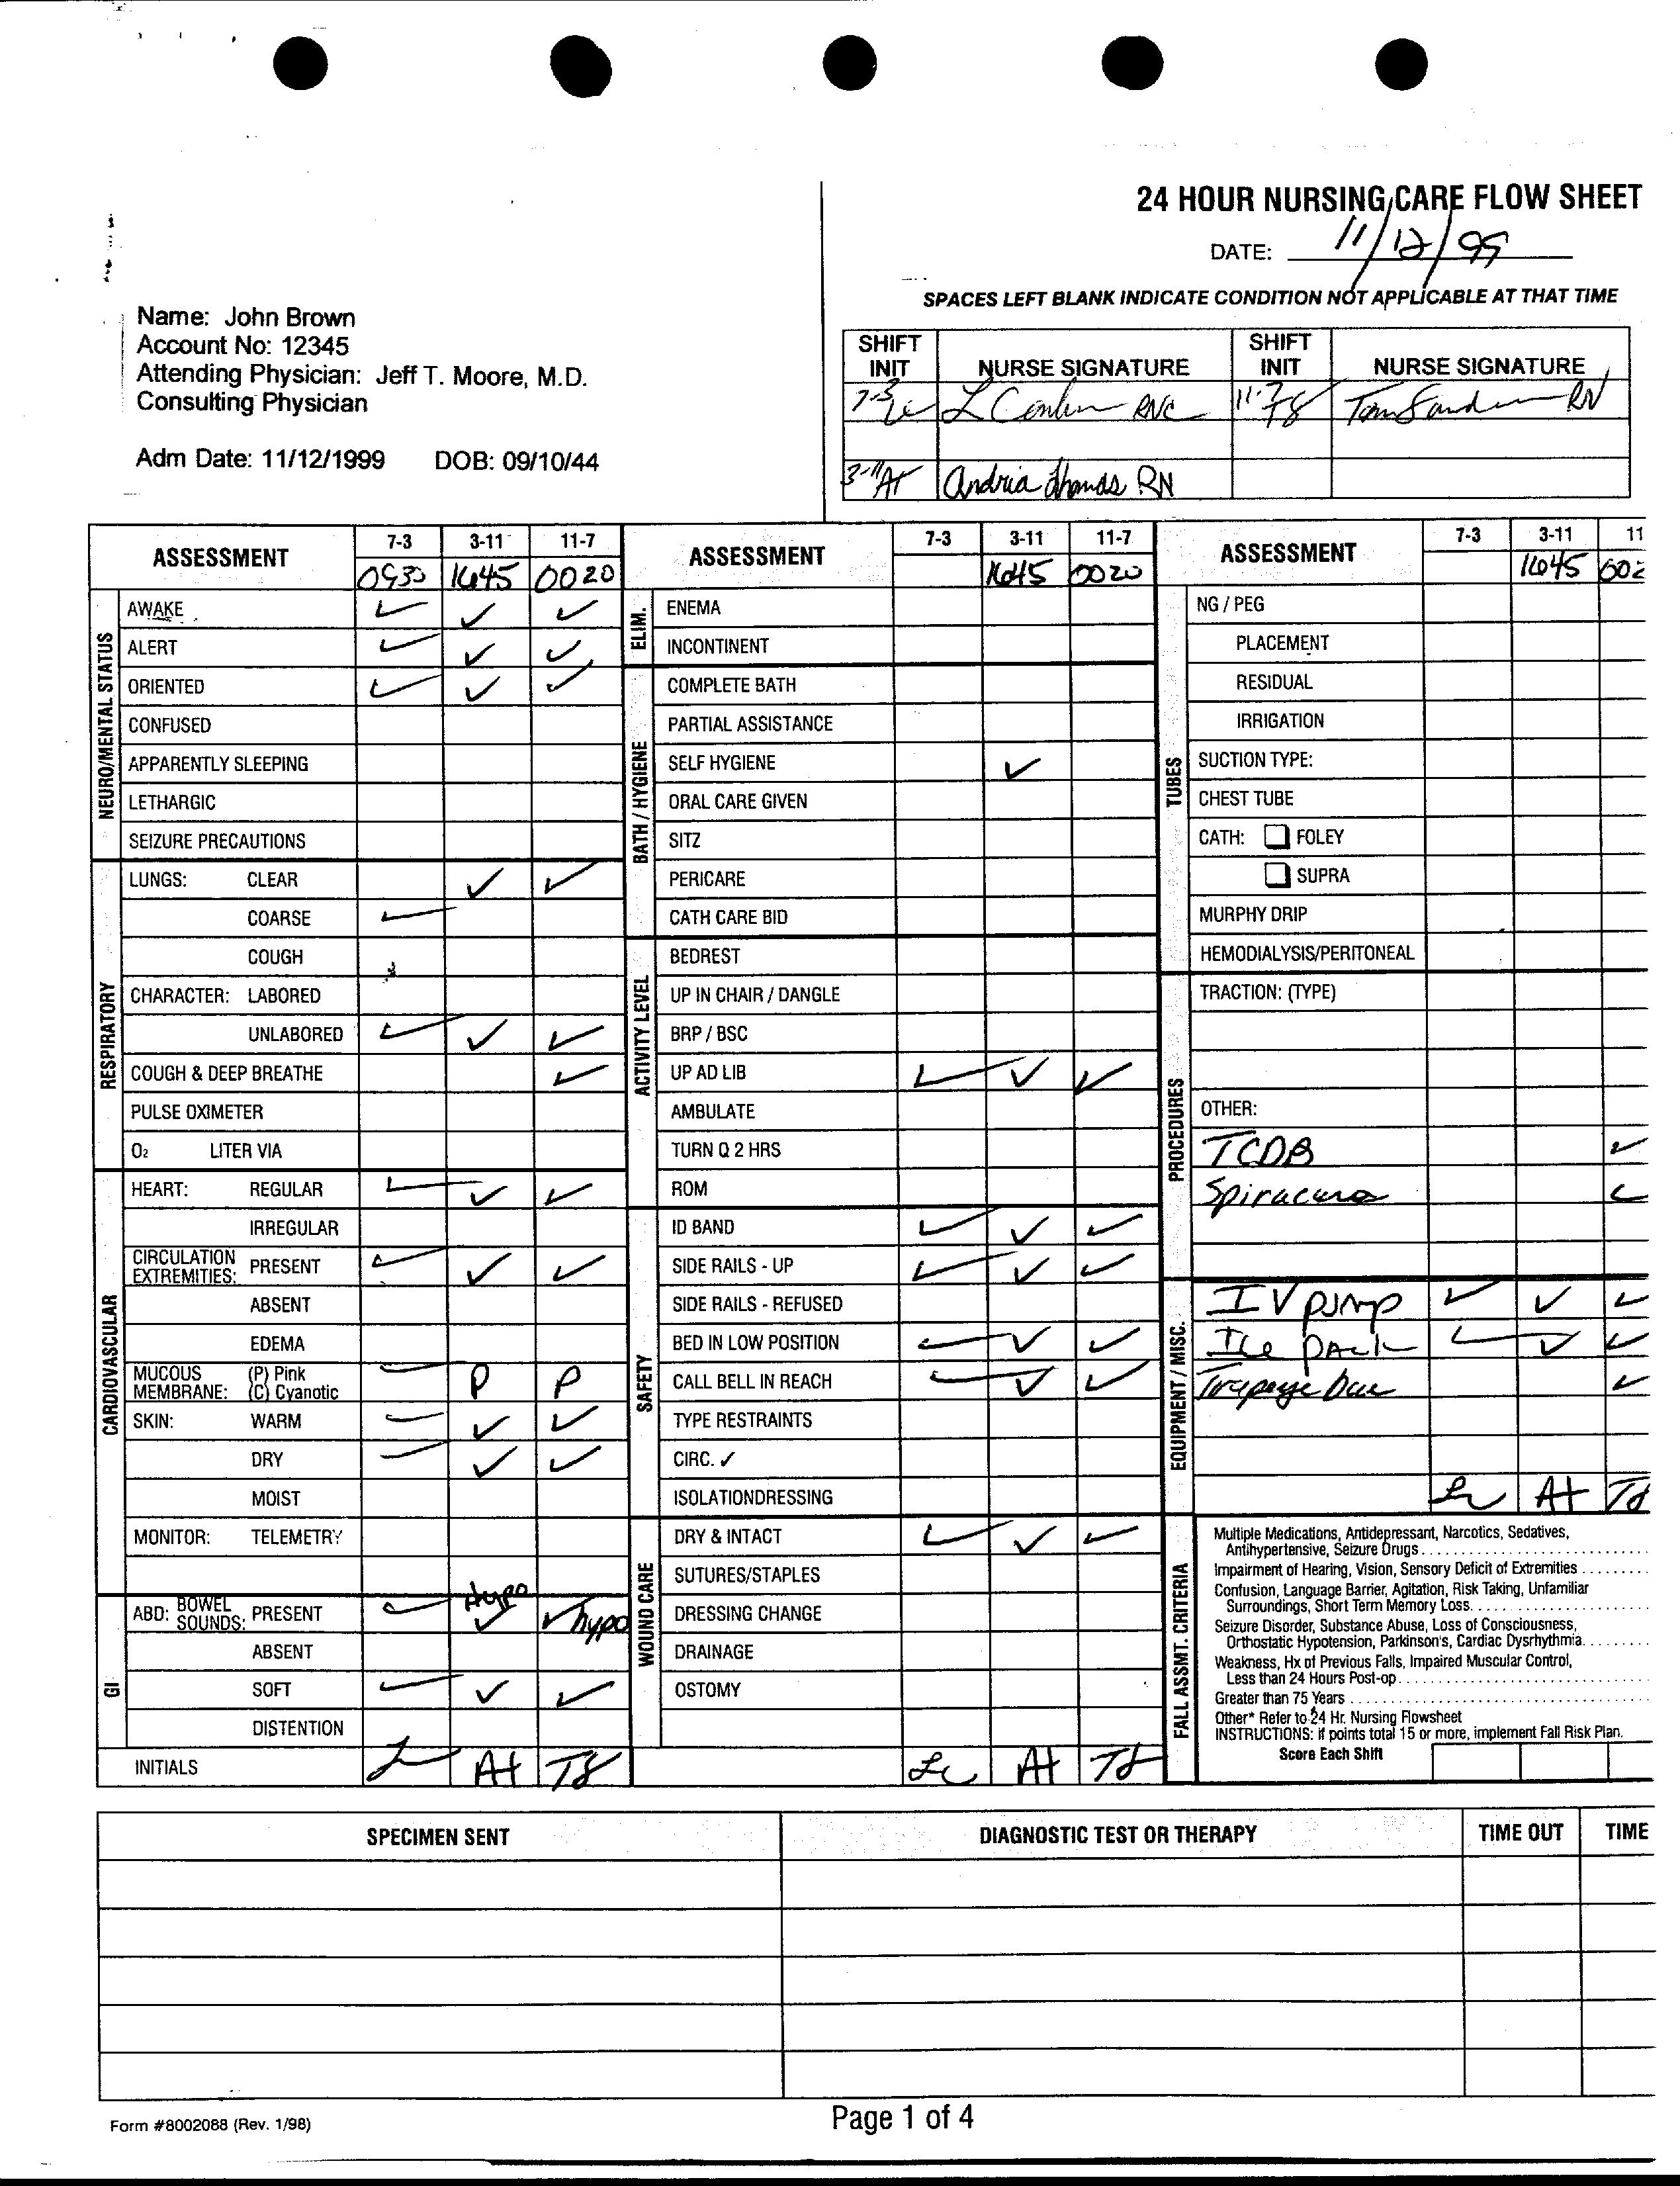 24 HOUR NURSING CARE FLOW SHEET
DATE: 11/12/99
SPACES LEFT BLANK INDICATE CONDITION NOT APPLICABLE AT THAT TIME
Name: John Brown
Account No: 12345
Attending Physician: Jeff T. Moore, M.D.
Consulting Physician
Adm Date: 11/12/1999 DOB: 09/10/44
SHIFT INIT NURSE SIGNATURE SHIFT INIT NURSE SIGNATURE
7-3 LC L RNC 11-7 TS Tom RN
3-11 AT Andria Thomas RN
ASSESSMENT 7-3 3-11 11-7
0930 1645 0020
NEURO/MENTAL STATUS
AWAKE ✓ ✓ ✓
ALERT ✓ ✓ ✓
ORIENTED ✓ ✓ ✓
CONFUSED
APPARENTLY SLEEPING
LETHARGIC
SEIZURE PRECAUTIONS
RESPIRATORY
LUNGS: CLEAR ✓ ✓
COARSE ✓
COUGH
CHARACTER: LABORED
UNLABORED ✓ ✓ ✓
COUGH & DEEP BREATHE ✓
PULSE OXIMETER
O2 LITER VIA
CARDIOVASCULAR
HEART: REGULAR ✓ ✓ ✓
IRREGULAR
CIRCULATION EXTREMITIES: PRESENT ✓ ✓ ✓
ABSENT
EDEMA
MUCOUS MEMBRANE: (P) Pink (C) Cyanotic ✓ P P
SKIN: WARM ✓ ✓ ✓
DRY ✓ ✓ ✓
MOIST
MONITOR: TELEMETRY
GI
ABD: BOWEL SOUNDS: PRESENT ✓ Hypo ✓ ✓ hypo
ABSENT
SOFT ✓ ✓ ✓
DISTENTION
INITIALS L AT TS
ASSESSMENT 7-3 3-11 11-7
1645 0020
ELIM.
ENEMA
INCONTINENT
BATH / HYGIENE
COMPLETE BATH
PARTIAL ASSISTANCE
SELF HYGIENE ✓
ORAL CARE GIVEN
SITZ
PERICARE
CATH CARE BID
ACTIVITY LEVEL
BEDREST
UP IN CHAIR / DANGLE
BRP / BSC
UP AD LIB ✓ ✓ ✓
AMBULATE
TURN Q 2 HRS
ROM
SAFETY
ID BAND ✓ ✓ ✓
SIDE RAILS - UP ✓ ✓ ✓
SIDE RAILS - REFUSED
BED IN LOW POSITION ✓ ✓ ✓
CALL BELL IN REACH ✓ ✓ ✓
TYPE RESTRAINTS
CIRC. ✓
ISOLATIONDRESSING
WOUND CARE
DRY & INTACT ✓ ✓ ✓
SUTURES/STAPLES
DRESSING CHANGE
DRAINAGE
OSTOMY
LC AT TS
ASSESSMENT 7-3 3-11 11
1645 002
TUBES
NG / PEG
PLACEMENT
RESIDUAL
IRRIGATION
SUCTION TYPE:
CHEST TUBE
CATH: ☐ FOLEY
☐ SUPRA
MURPHY DRIP
HEMODIALYSIS/PERITONEAL
PROCEDURES
TRACTION: (TYPE)
OTHER:
TCDB ✓
✓
EQUIPMENT / MISC.
IV pump ✓ ✓ ✓
Ice pack ✓ ✓ ✓
Trapeze bar ✓
LC AT TS
FALL ASSMT. CRITERIA
Multiple Medications, Antidepressant, Narcotics, Sedatives,
Antihypertensive, Seizure Drugs
Impairment of Hearing, Vision, Sensory Deficit of Extremities
Confusion, Language Barrier, Agitation, Risk Taking, Unfamiliar
Surroundings, Short Term Memory Loss
Seizure Disorder, Substance Abuse, Loss of Consciousness,
Orthostatic Hypotension, Parkinson's, Cardiac Dysrhythmia
Weakness, Hx of Previous Falls, Impaired Muscular Control,
Less than 24 Hours Post-op
Greater than 75 Years
Other* Refer to 24 Hr. Nursing Flowsheet
INSTRUCTIONS: if points total 15 or more, implement Fall Risk Plan.
Score Each Shift
SPECIMEN SENT DIAGNOSTIC TEST OR THERAPY TIME OUT TIME
Form #8002088 (Rev. 1/98)
Page 1 of 4